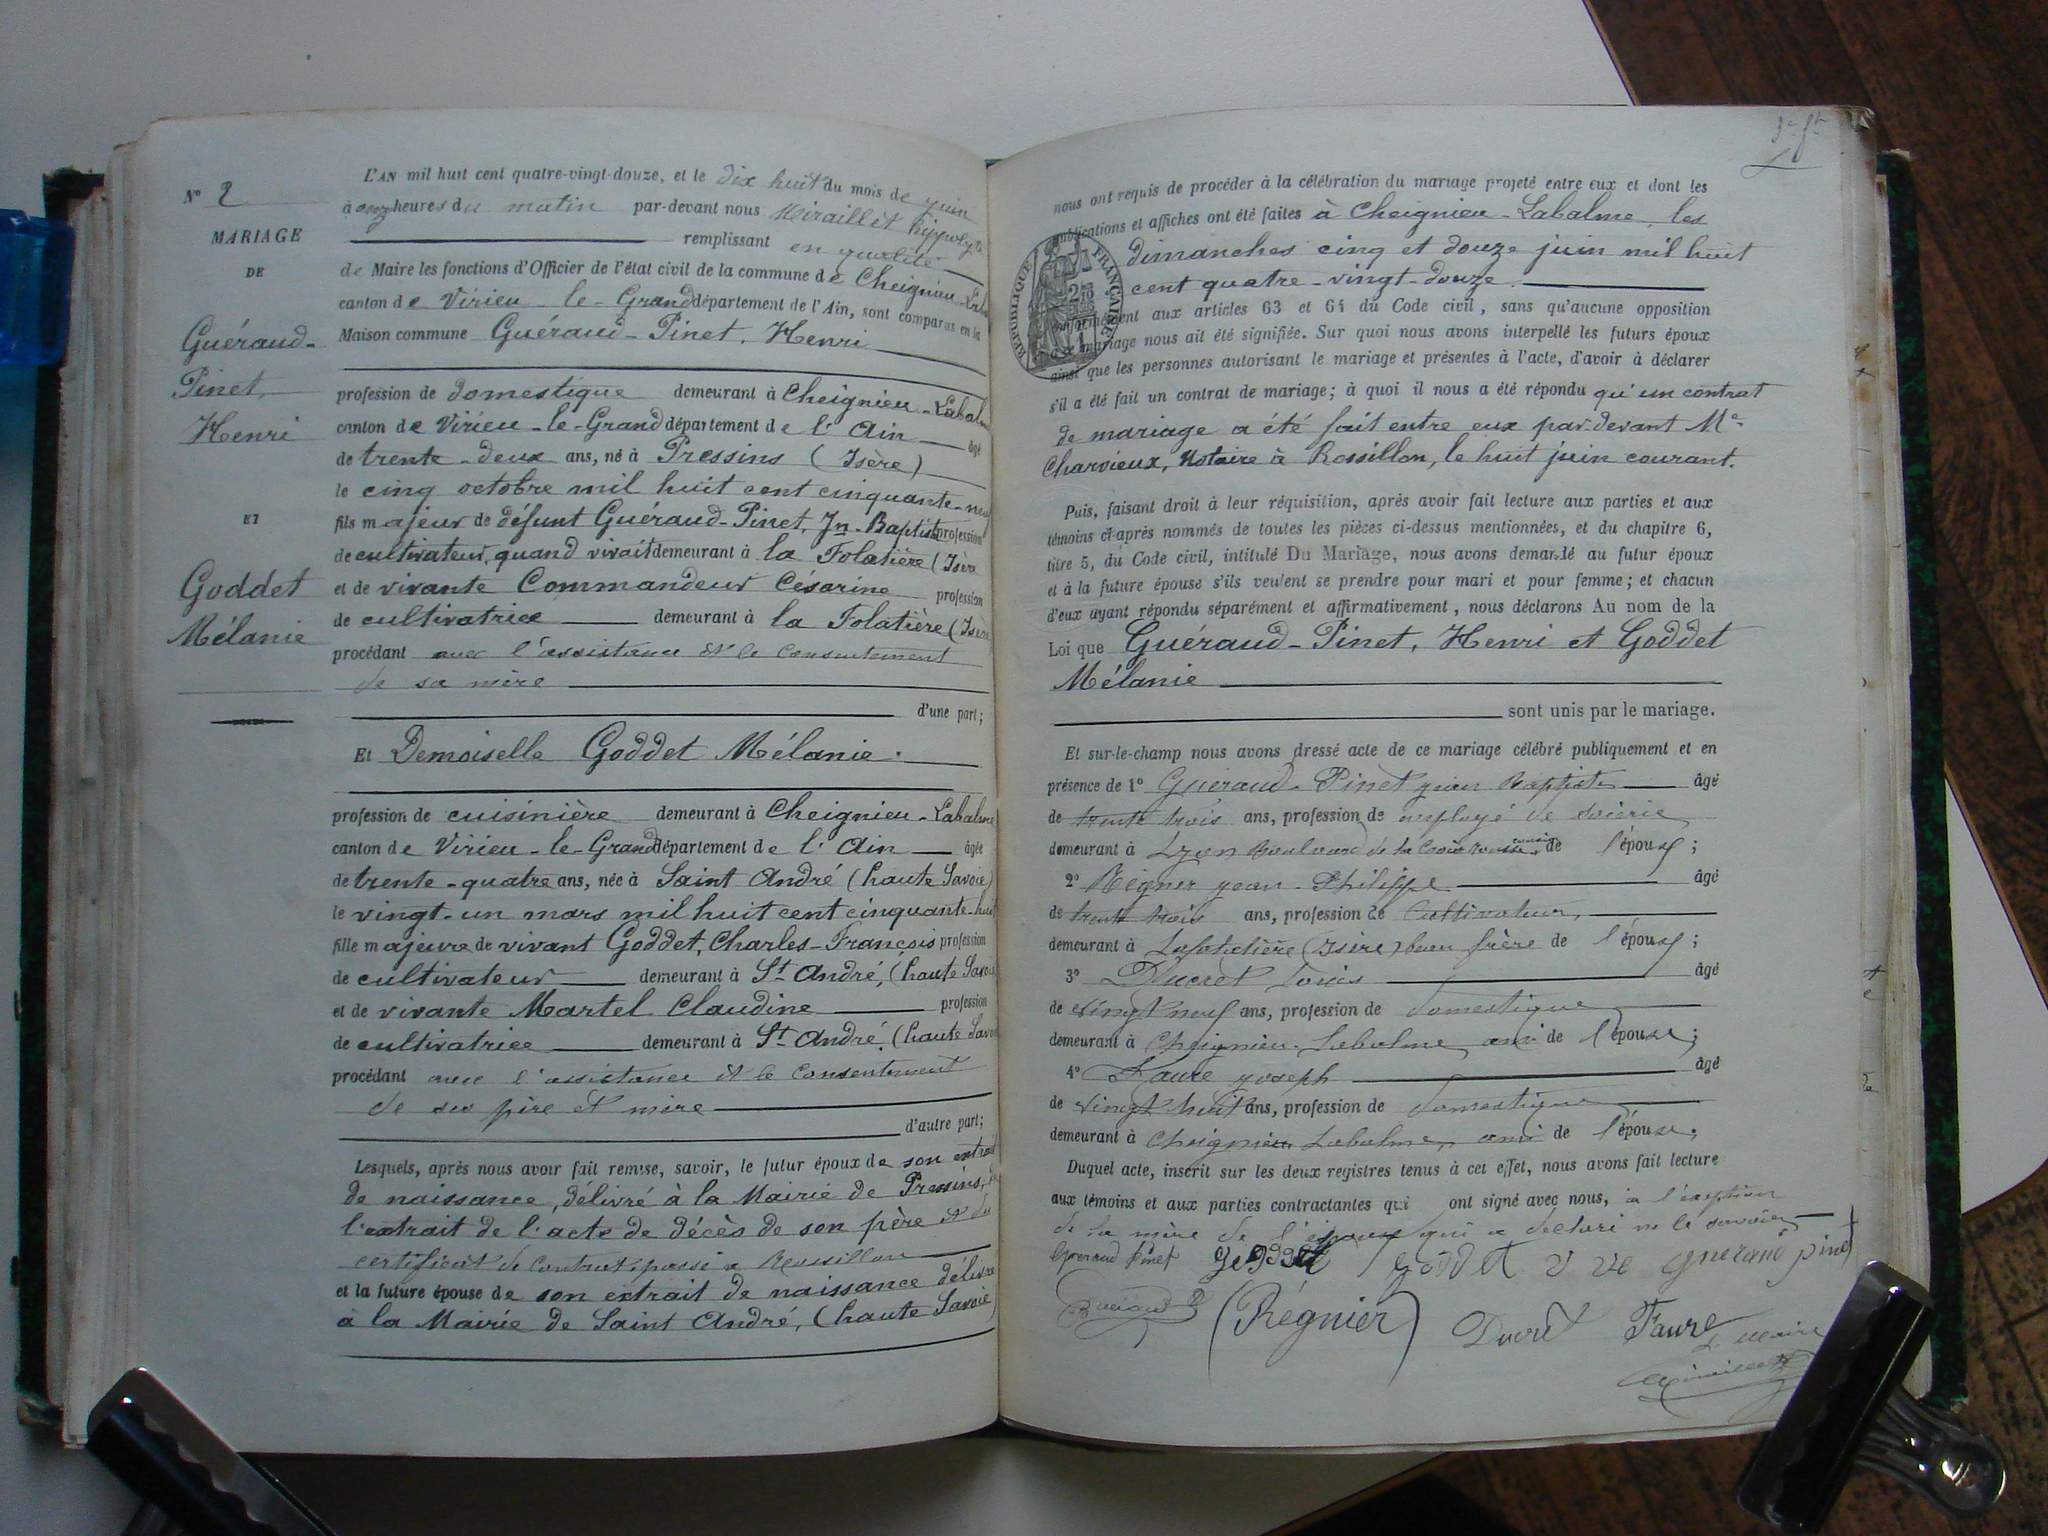 N° 2
MARIAGE
DE
Guéraud-
Pinet,
Henri
ET
Goddet
Mélanie
L'AN mil huit cent quatre-vingt-douze, et le dix huit du mois de juin
à onze heures du matin par-devant nous Miraillet hippolyte
remplissant en qualité
de Maire les fonctions d'Officier de l'état civil de la commune de Cheignieu-Laba
canton de Virieu-le-Grand département de l'Ain, sont comparus en la
Maison commune Guéraud-Pinet, Henri
profession de domestique demeurant à Cheignieu-Labalme
canton de Virieu-le-Grand département de l'Ain âgé
de trente-deux ans, né à Pressins (Isère)
le cinq octobre mil huit cent cinquante-neuf
fils majeur de défunt Guéraud-Pinet, Jn-Baptiste profession
de cultivateur, quand vivait demeurant à la Folatière (Isère
et de vivante Commandeur Césarine profession
de cultivatrice demeurant à la Folatière (Isère
procédant avec l'assistance et le consentement
de sa mère
d'une part;
Et Demoiselle Goddet Mélanie.
profession de cuisinière demeurant à Cheignieu-Labalme
canton de Virieu-le-Grand département de l'Ain âgée
de trente-quatre ans, née à Saint André (haute Savoie)
le vingt-un mars mil huit cent cinquante-huit
fille majeure de vivant Goddet, Charles-François profession
de cultivateur demeurant à St André, (haute Savoie
et de vivante Martel Claudine profession
de cultivatrice demeurant à St André, (haute Savoie
procédant avec l'assistance et le consentement
de ses père et mère
d'autre part;
Lesquels, après nous avoir fait remise, savoir, le futur époux de son extrait
de naissance, délivré à la Mairie de Pressins, de
l'extrait de l'acte de décès de son père et du
certificat de contrat passé à Rossillon
et la future épouse de son extrait de naissance délivré
à la Mairie de Saint André, (haute Savoie)
nous ont requis de procéder à la célébration du mariage projeté entre eux et dont les
publications et affiches ont été faites à Cheignieu-Labalme, les
dimanches cinq et douze juin mil huit
cent quatre-vingt-douze.
RÉPUBLIQUE FRANÇAISE
conformément aux articles 63 et 64 du Code civil, sans qu'aucune opposition
au mariage nous ait été signifiée. Sur quoi nous avons interpellé les futurs époux
ainsi que les personnes autorisant le mariage et présentes à l'acte, d'avoir à déclarer
s'il a été fait un contrat de mariage; à quoi il nous a été répondu qu'un contrat
de mariage a été fait entre eux par devant Me
Charvieux, Notaire à Rossillon, le huit juin courant.
Puis, faisant droit à leur réquisition, après avoir fait lecture aux parties et aux
témoins ci-après nommés de toutes les pièces ci-dessus mentionnées, et du chapitre 6,
titre 5, du Code civil, intitulé Du Mariage, nous avons demandé au futur époux
et à la future épouse s'ils veulent se prendre pour mari et pour femme; et chacun
d'eux ayant répondu séparément et affirmativement, nous déclarons Au nom de la
Loi que Guéraud-Pinet, Henri et Goddet
Mélanie
sont unis par le mariage.
Et sur-le-champ nous avons dressé acte de ce mariage célébré publiquement et en
présence de 1° Gueraud-Pinet jean Baptiste âgé
de trente trois ans, profession de employé de soierie
demeurant à Lyon Boulevard de la Croix rousse cousin de l'époux;
2° Régnier jean-Philippe âgé
de trente trois ans, profession de cultivateur,
demeurant à Lafolatière (Isère) beau frère de l'époux;
3° Ducret Louis âgé
de vingt neuf ans, profession de domestique
demeurant à Cheignieu-Labalme, ami de l'épouse;
4° Faure joseph âgé
de vingt huit ans, profession de domestique
demeurant à Cheignieu Labalme, ami de l'épouse.
Duquel acte, inscrit sur les deux registres tenus à cet effet, nous avons fait lecture
aux témoins et aux parties contractantes qui ont signé avec nous, à l'exeption
de la mère de l'épouse qui a déclaré ne le savoir
Gueraud Pinet Goddet Goddet v ve gueraud pinet
(Régnier) Ducret Faure
Le Maire
Miraillet